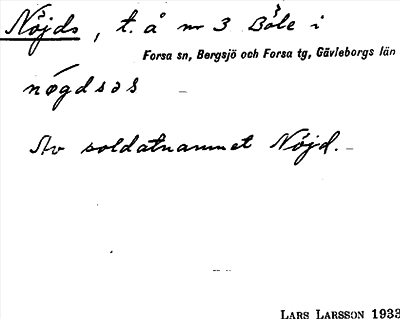 Nöjds, t. å nr 3 Böle i
Forsa sn, Bergsjö och Forsa tg, Gävleborgs län
nøgdsəs
Av soldatnamnet Nöjd.
LARS LARSSON 1933